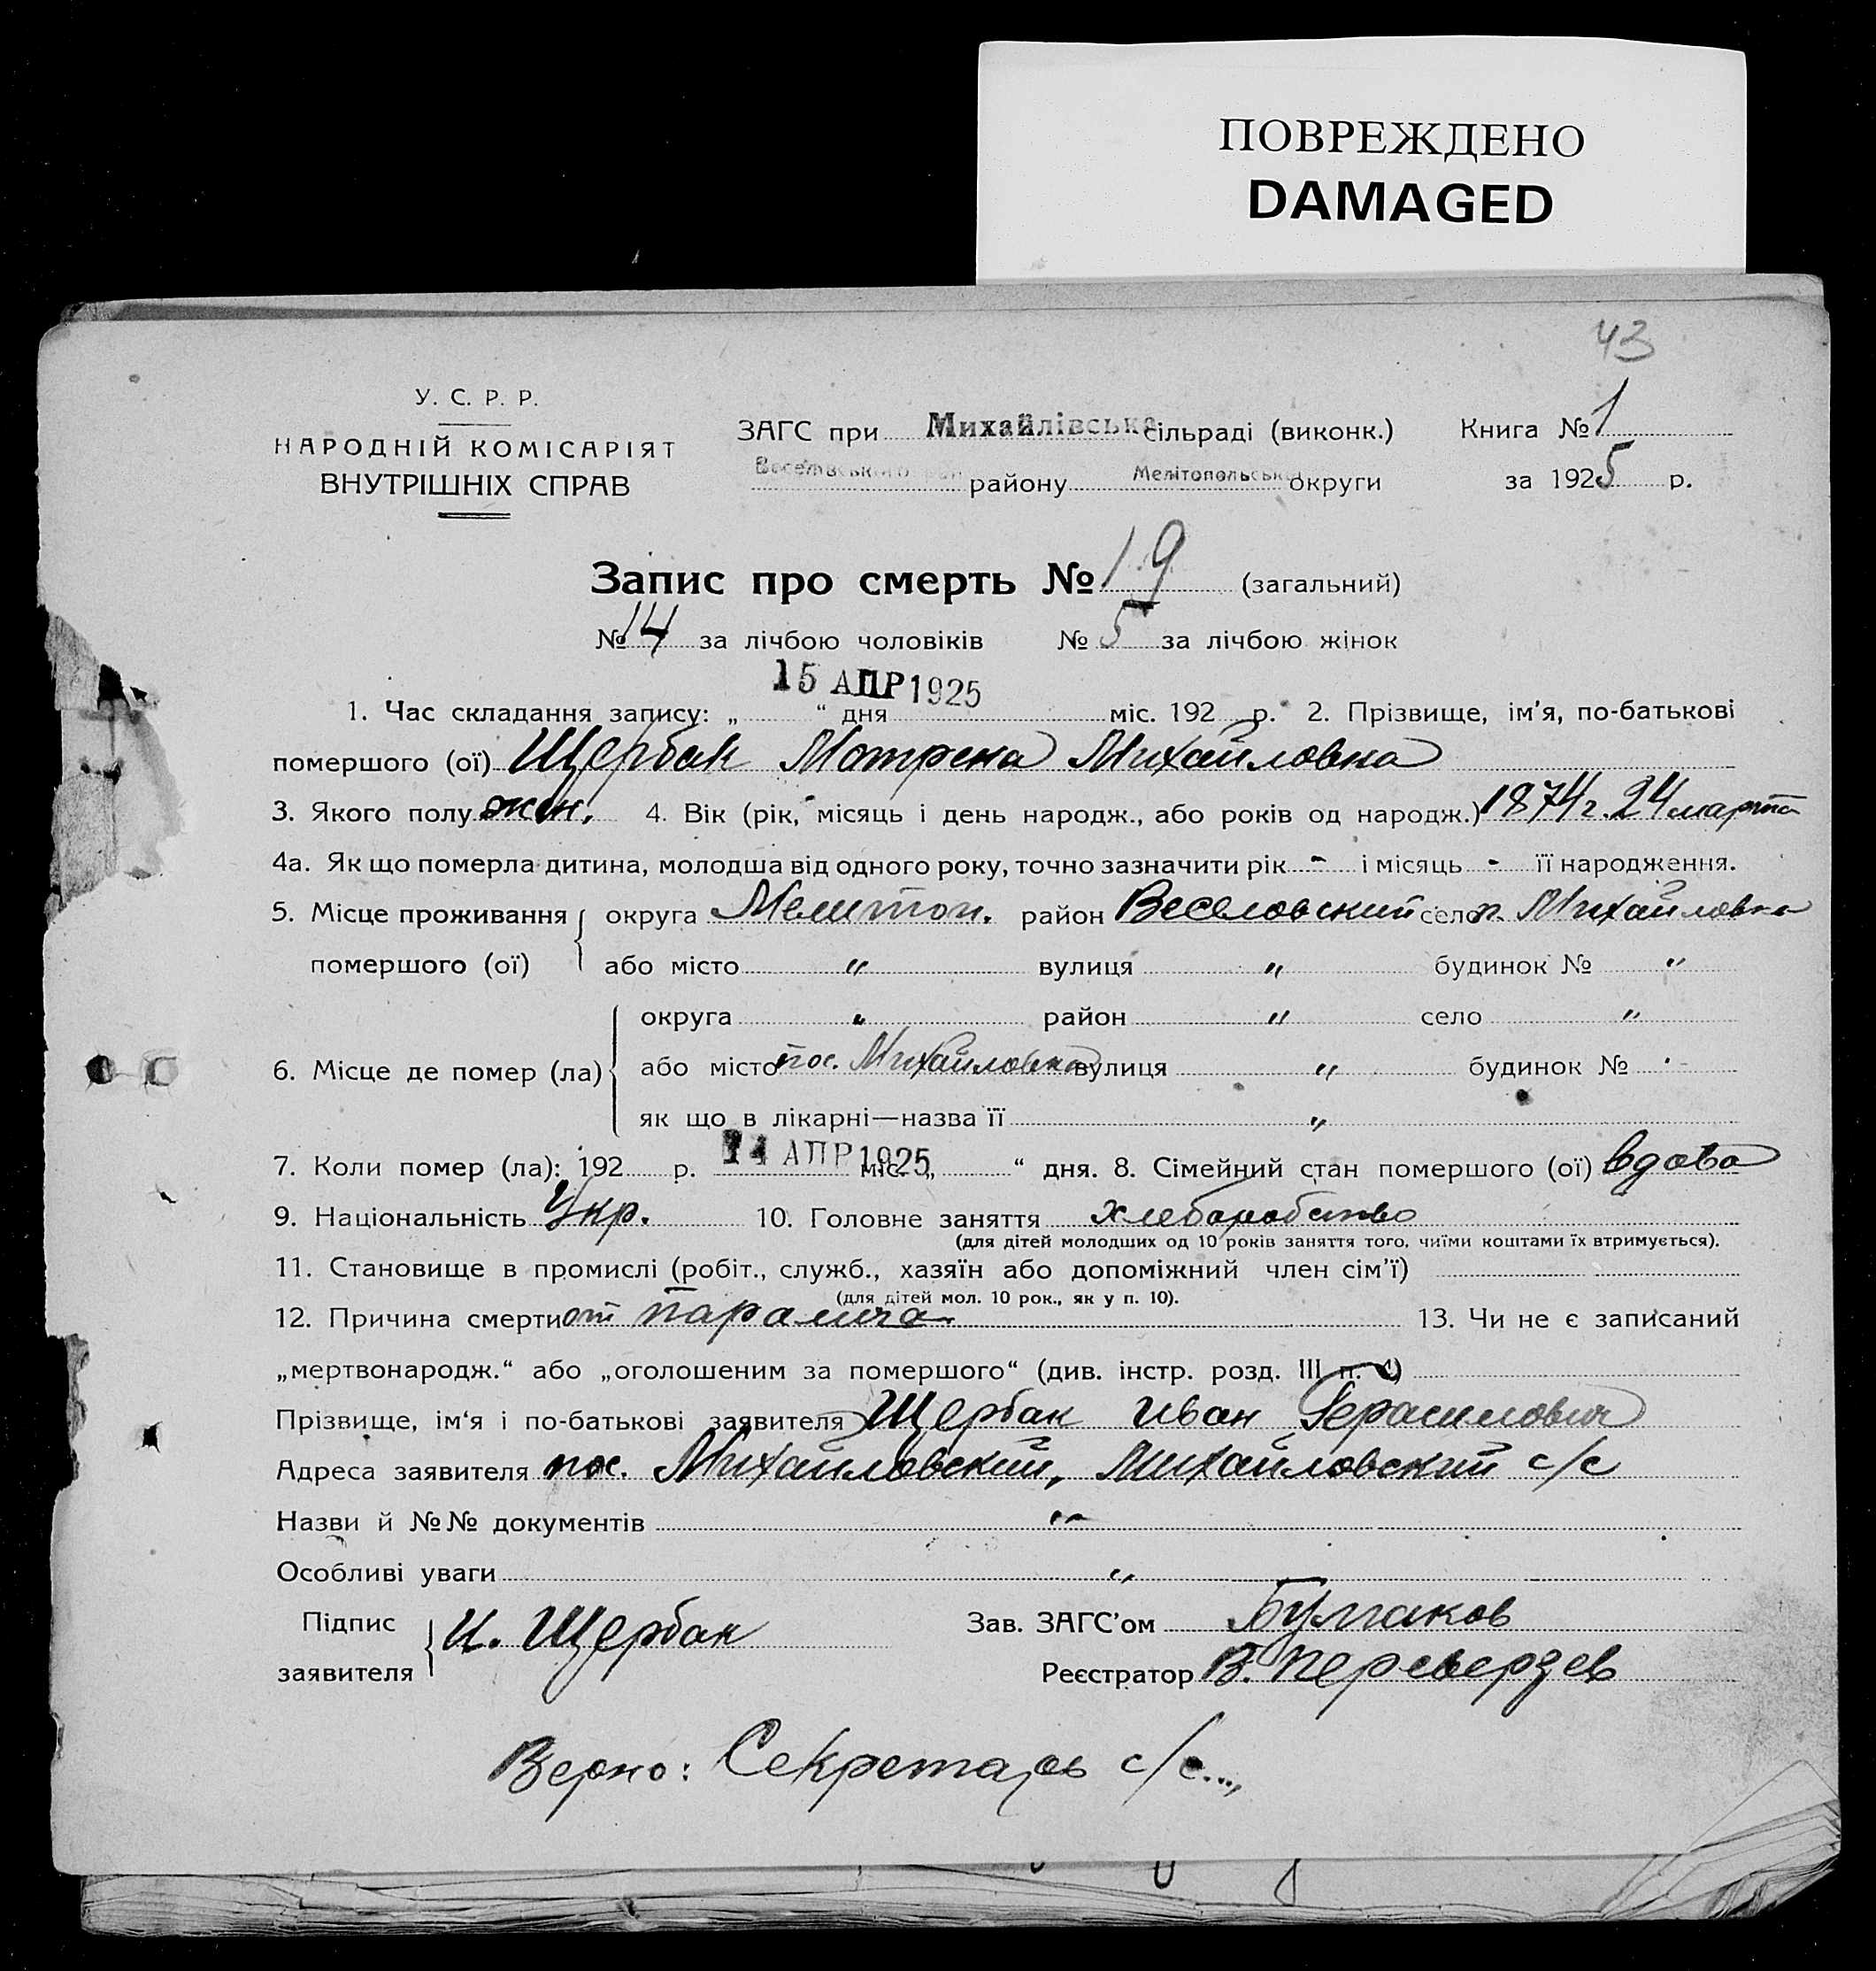 ПОВРЕЖДЕНО
DAMAGED
43
У. С. Р. Р.
НАРОДНІЙ КОМІСАРІЯТ
ВНУТРІШНІХ СПРАВ
ЗАГС при Михайлівська сільраді (виконк.) Книга № 1
Веселівського району Мелітопольської округи за 1925 р.
Запис про смерть № 19 (загальний)
№ 14 за лічбою чоловіків № 5 за лічбою жінок
15 АПР 1925
1. Час складання запису: „ “ дня міс. 192 р. 2. Прізвище, ім’я, по-батькові
помершого (ої) Щербак Мотрена Михайловна
3. Якого полу жен. 4. Вік (рік, місяць і день народж., або років од народж.) 1874 г. 24 марта
4а. Як що померла дитина, молодша від одного року, точно зазначити рік - і місяць - її народження.
5. Місце проживання округа Мелитоп. район Веселовский село п. Михайловка
помершого (ої) або місто " вулиця " будинок № "
округа " район " село "
6. Місце де помер (ла) або місто пос. Михайловка вулиця " будинок № -
як що в лікарні—назва її "
7. Коли помер (ла): 192 р. 14 АПР 1925 міс. „ “ дня. 8. Сімейний стан помершого (ої) вдова
9. Національність Укр. 10. Головне заняття хлеборобство
(для дітей молодших од 10 років заняття того, чиїми коштами їх втримується).
11. Становище в промислі (робіт., служб., хазяїн або допоміжний член сім’ї)
(для дітей мол. 10 рок., як у п. 10).
12. Причина смерти от паралича 13. Чи не є записаний
„мертвонародж.“ або „оголошеним за помершого“ (див. інстр. розд. III п. )
Прізвище, ім‘я і по-батькові заявителя Щербак Иван Герасимович
Адреса заявителя пос. Михайловский, Михайловский с/с
Назви й №№ документів "
Особливі уваги "
Підпис И. Щербак Зав. ЗАГС’ом Булгаков
заявителя Реєстратор В. Переверзев
Верно: Секретарь с/с...,